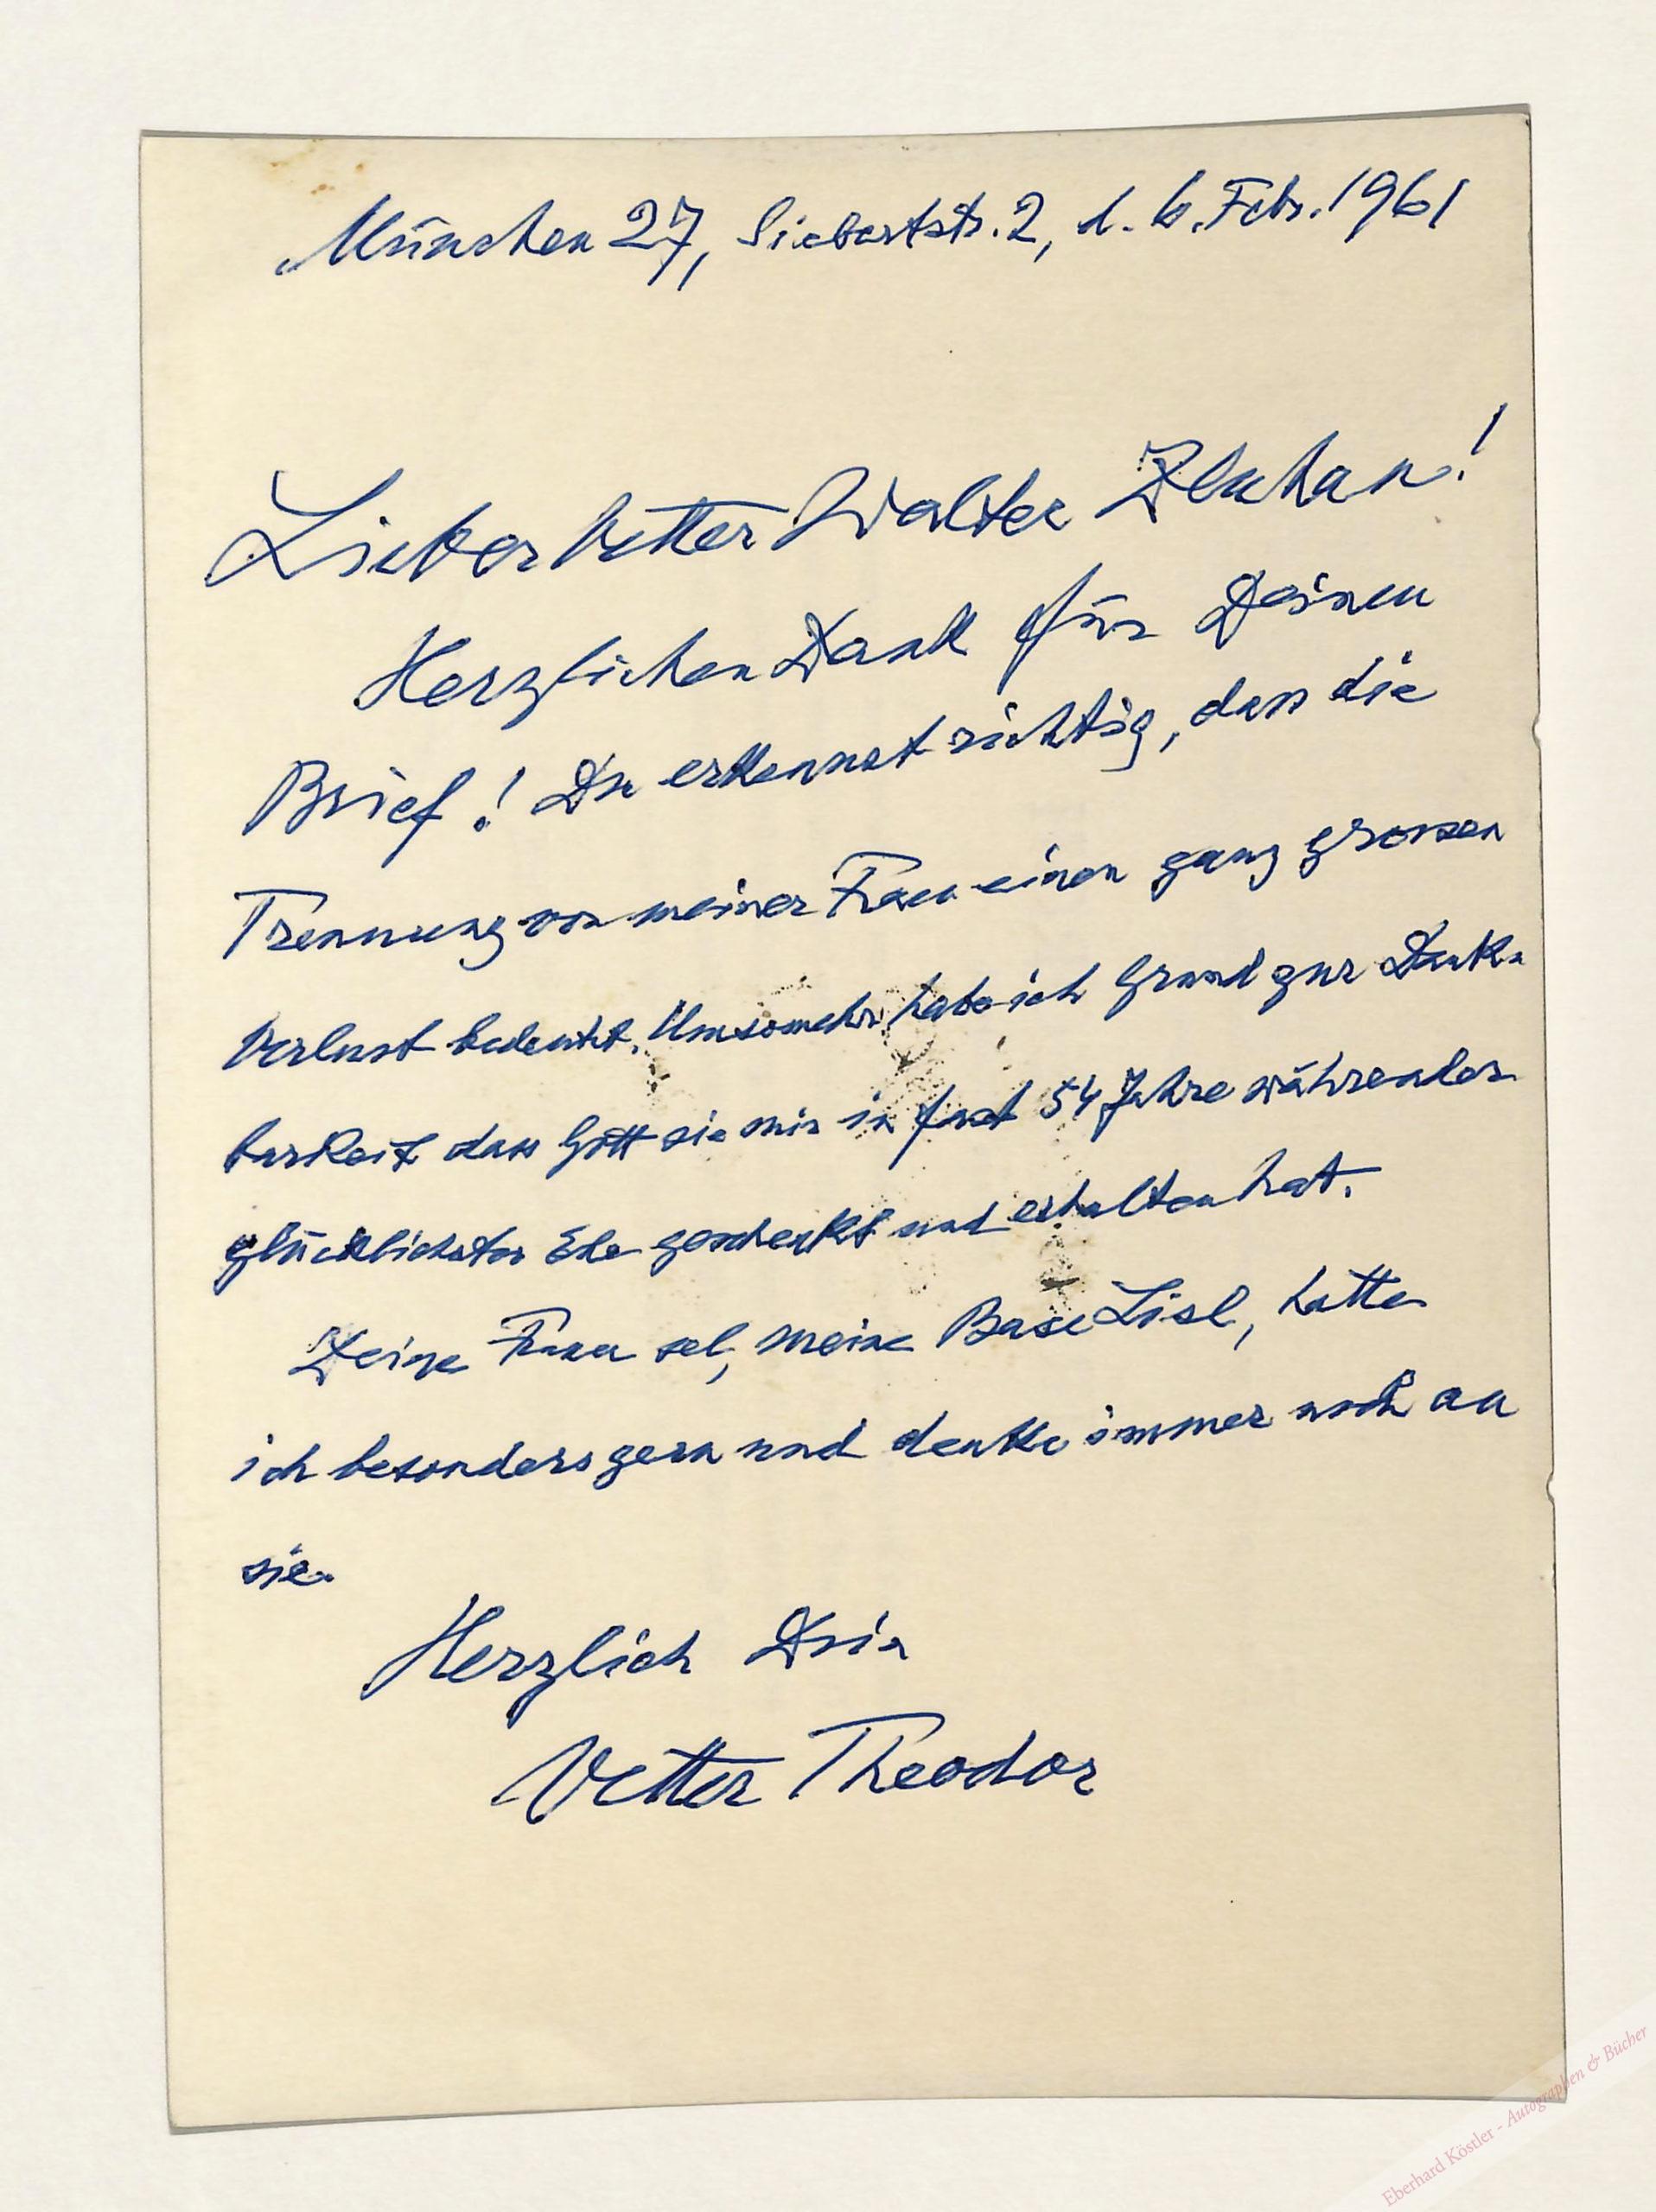 München 27, Siebertstr. 2, d. 6. Febr. 1961
Lieber Vetter Walter !
Herzlichen Dank für Deinen
Brief! Du erkennst richtig, dass die
Trennung von meiner Frau einen ganz grossen
Verlust bedeutet. Umsomehr habe ich Grund zur Dank-
barkeit dass Gott sie mir in fast 54 Jahre währender
glücklichster Ehe geschenkt und erhalten hat.
Deine Frau sel, meine Base Lisl, hatte
ich besonders gern und denke immer noch an
sie.
Herzlich Dein
Vetter Theodor
Eberhard Köstler - Autographen & Bücher